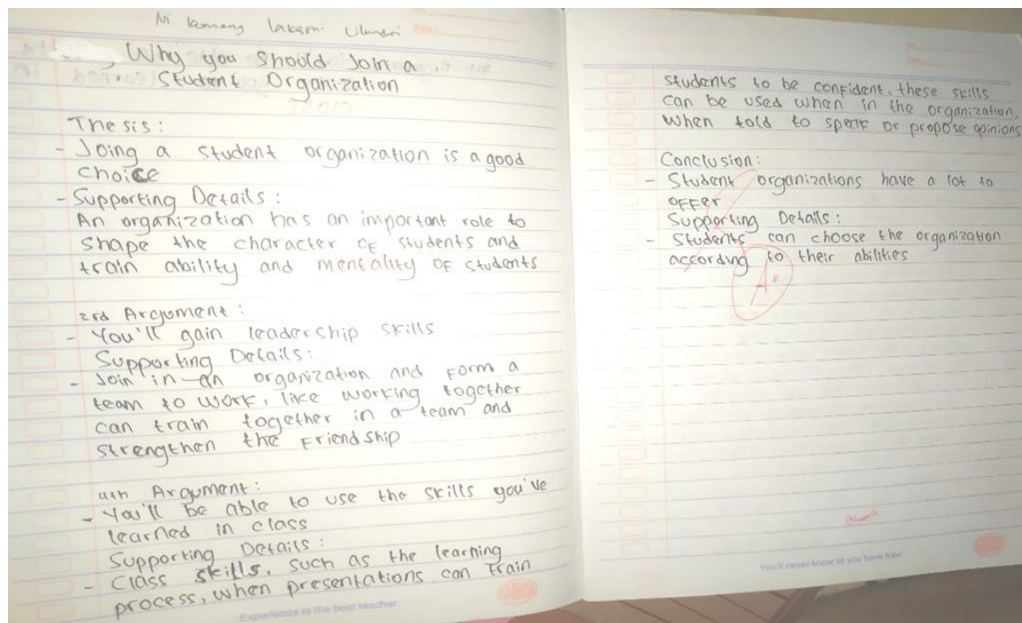 Ni Komang Laksmi Ulandri
Why you should Join a
Student Organization
Thesis:
- Joing a student organization is a good
choice
- Supporting Details:
An organization has an important role to
shape the character of students and
train ability and mentality of students
2rd Argument:
- You'll gain leadership skills
Supporting Details:
- Join in an organization and form a
team to work, like working together
can train together in a team and
strengthen the friendship
4th Argument:
- You'll be able to use the skills you've
learned in class
Supporting Details:
- Class skills, such as the learning
process, when presentations can train
Experience is the best teacher
students to be confident. these skills
can be used when in the organization,
when told to speak or propose opinions
Conclusion:
- Student organizations have a lot to
offer
Supporting Details:
- Students can choose the organization
according to their abilities
A.
You'll never know till you have tried